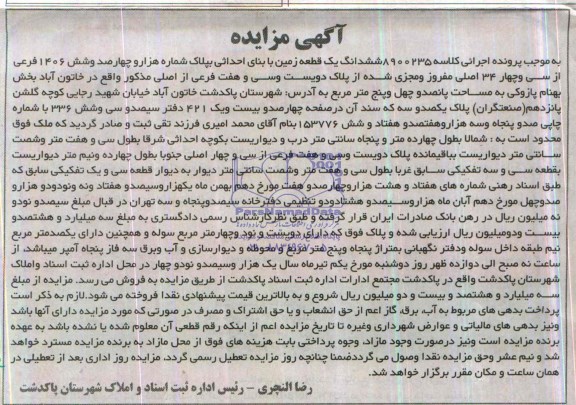 آگهی مزایده
به موجب پرونده اجرائی کلاسه ۸۹۰۰۲۳۵ ششدانگ یک قطعه زمین با بنای احداثی بپلاک شماره هزارو چهارصد وشش ۱۴۰۶ فرعی
از سی وچهار ۳۴ اصلی مفروز ومجزی شده از پلاک دویست وسی و هفت فرعی از اصلی مذکور واقع در خاتون آباد بخش
بهنام پازوکی به مساحت پانصدو چهل وپنج متر مربع به آدرس: شهرستان پاکدشت خاتون آباد خیابان شهید رجایی کوچه گلشن
پانزدهم(صنعتگران) پلاک یکصدو سه که سند آن درصفحه چهارصدو بیست ویک ۴۲۱ دفتر سیصدو سی وشش ۳۳۶ با شماره
چاپی صدو پنجاه وسه هزاروهفتصدو هفتاد و شش ۱۵۳۷۷۶ بنام آقای محمد امیری فرزند تقی ثبت و صادر گردید که ملک فوق
محدود است به : شمالا بطول چهارده متر و پنجاه سانتی متر درب و دیواریست بکوچه احداثی شرقا بطول سی و هفت متر وشصت
سانتی متر دیواریست بباقیمانده پلاک دویست وسی و هفت فرعی از سی و چهار اصلی جنوبا بطول چهارده ونیم متر دیواریست
بقطعه سی و سه تفکیکی سابق غربا بطول سی و هفت متر وشصت سانتی متر دیوار به دیوار قطعه سی و یک تفکیکی سابق که
طبق اسناد رهنی شماره های هفتاد و هشت هزاروچهارصدو هفت مورخ دهم بهمن ماه یکهزاروسیصدو هفتاد ونه ونودودو هزارو
صدوچهل مورخ دهم آبان ماه هزاروسیصدو هشتادودو تنظیمی دفترخانه سیصدوپنجاه و سه تهران در قبال مبلغ سیصدو نودو
نه میلیون ریال در رهن بانک صادرات ایران قرار گرفته و طبق نظر کارشناس رسمی دادگستری به مبلغ سه میلیارد و هشتصدو
بیست ودومیلیون ریال ارزیابی شده و پلاک فوق که دارای دویست و نود وچهارمتر مربع سوله و همچنین دارای یکصدمتر مربع
نیم طبقه داخل سوله ودفتر نگهبانی بمتراژ پنجاه وپنج متر مربع و محوطه و دیوارسازی و آب وبرق سه فاز پنجاه آمپر میباشد، از
ساعت نه صبح الی دوازده ظهر روز دوشنبه مورخ یکم تیرماه سال یک هزار وسیصدو نودو چهار در محل اداره ثبت اسناد واملاک
شهرستان پاکدشت واقع در پاکدشت مجتمع ادارات اداره ثبت اسناد پاکدشت از طریق مزایده به فروش می رسد. مزایده از مبلغ
سه میلیارد و هشتصد و بیست و دو میلیون ریال شروع و به بالاترین قیمت پیشنهادی نقدا فروخته می شود. لازم به ذکر است
پرداخت بدهی های مربوط به آب، برق، گاز اعم از حق انشعاب و یا حق اشتراک و مصرف در صورتی که مورد مزایده دارای آنها باشد
ونیز بدهی های مالیاتی و عوارض شهرداری وغیره تا تاریخ مزایده اعم از اینکه رقم قطعی آن معلوم شده یا نشده باشد به عهده
برنده مزایده است ونیز درصورت وجود مازاد، وجوه پرداختی بابت هزینه های فوق از محل مازاد به برنده مزایده مسترد خواهد
شد و نیم عشر وحق مزایده نقدا وصول می گرددضمنا چنانچه روز مزایده تعطیل رسمی گردد، مزایده روز اداری بعد از تعطیلی در
همان ساعت و مکان مقرر برگزار خواهد شد.
رضا التجری - رئیس اداره ثبت اسناد و املاک شهرستان پاکدشت
ParsNamadData